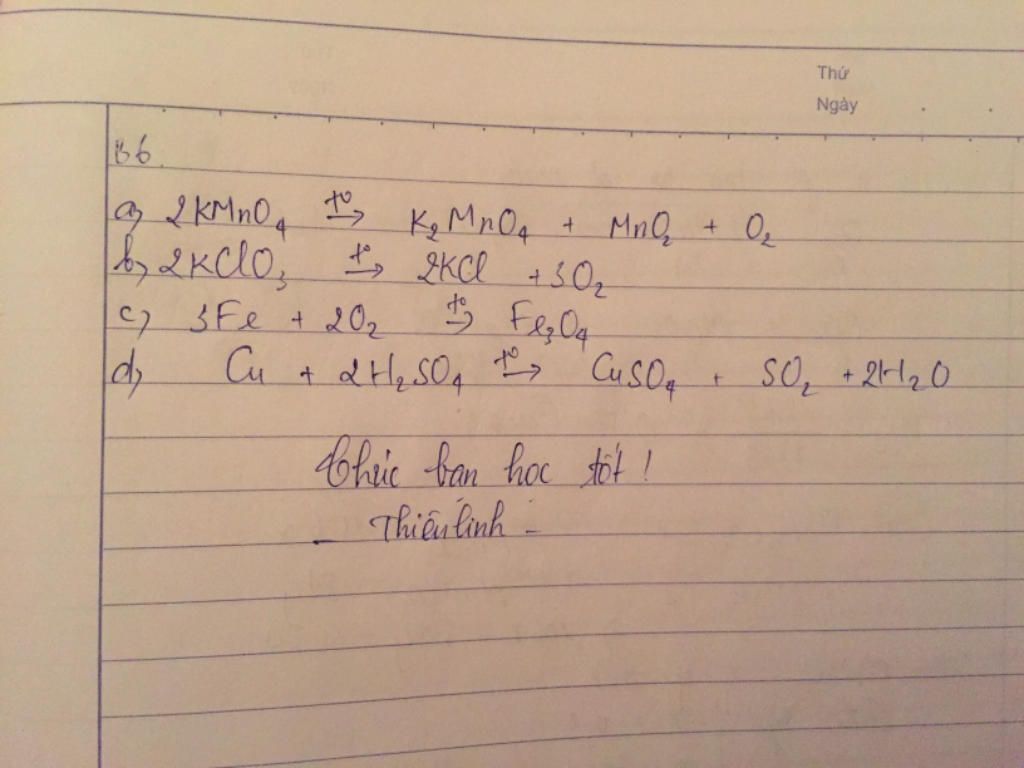 Thứ
Ngày
B6.
a) 2KMnO₄ →(t°) K₂MnO₄ + MnO₂ + O₂
b) 2KClO₃ →(t°) 2KCl + 3O₂
c) 3Fe + 2O₂ →(t°) Fe₃O₄
d) Cu + 2H₂SO₄ →(t°) CuSO₄ + SO₂ + 2H₂O
Chúc bạn học tốt!
- Thiên linh -